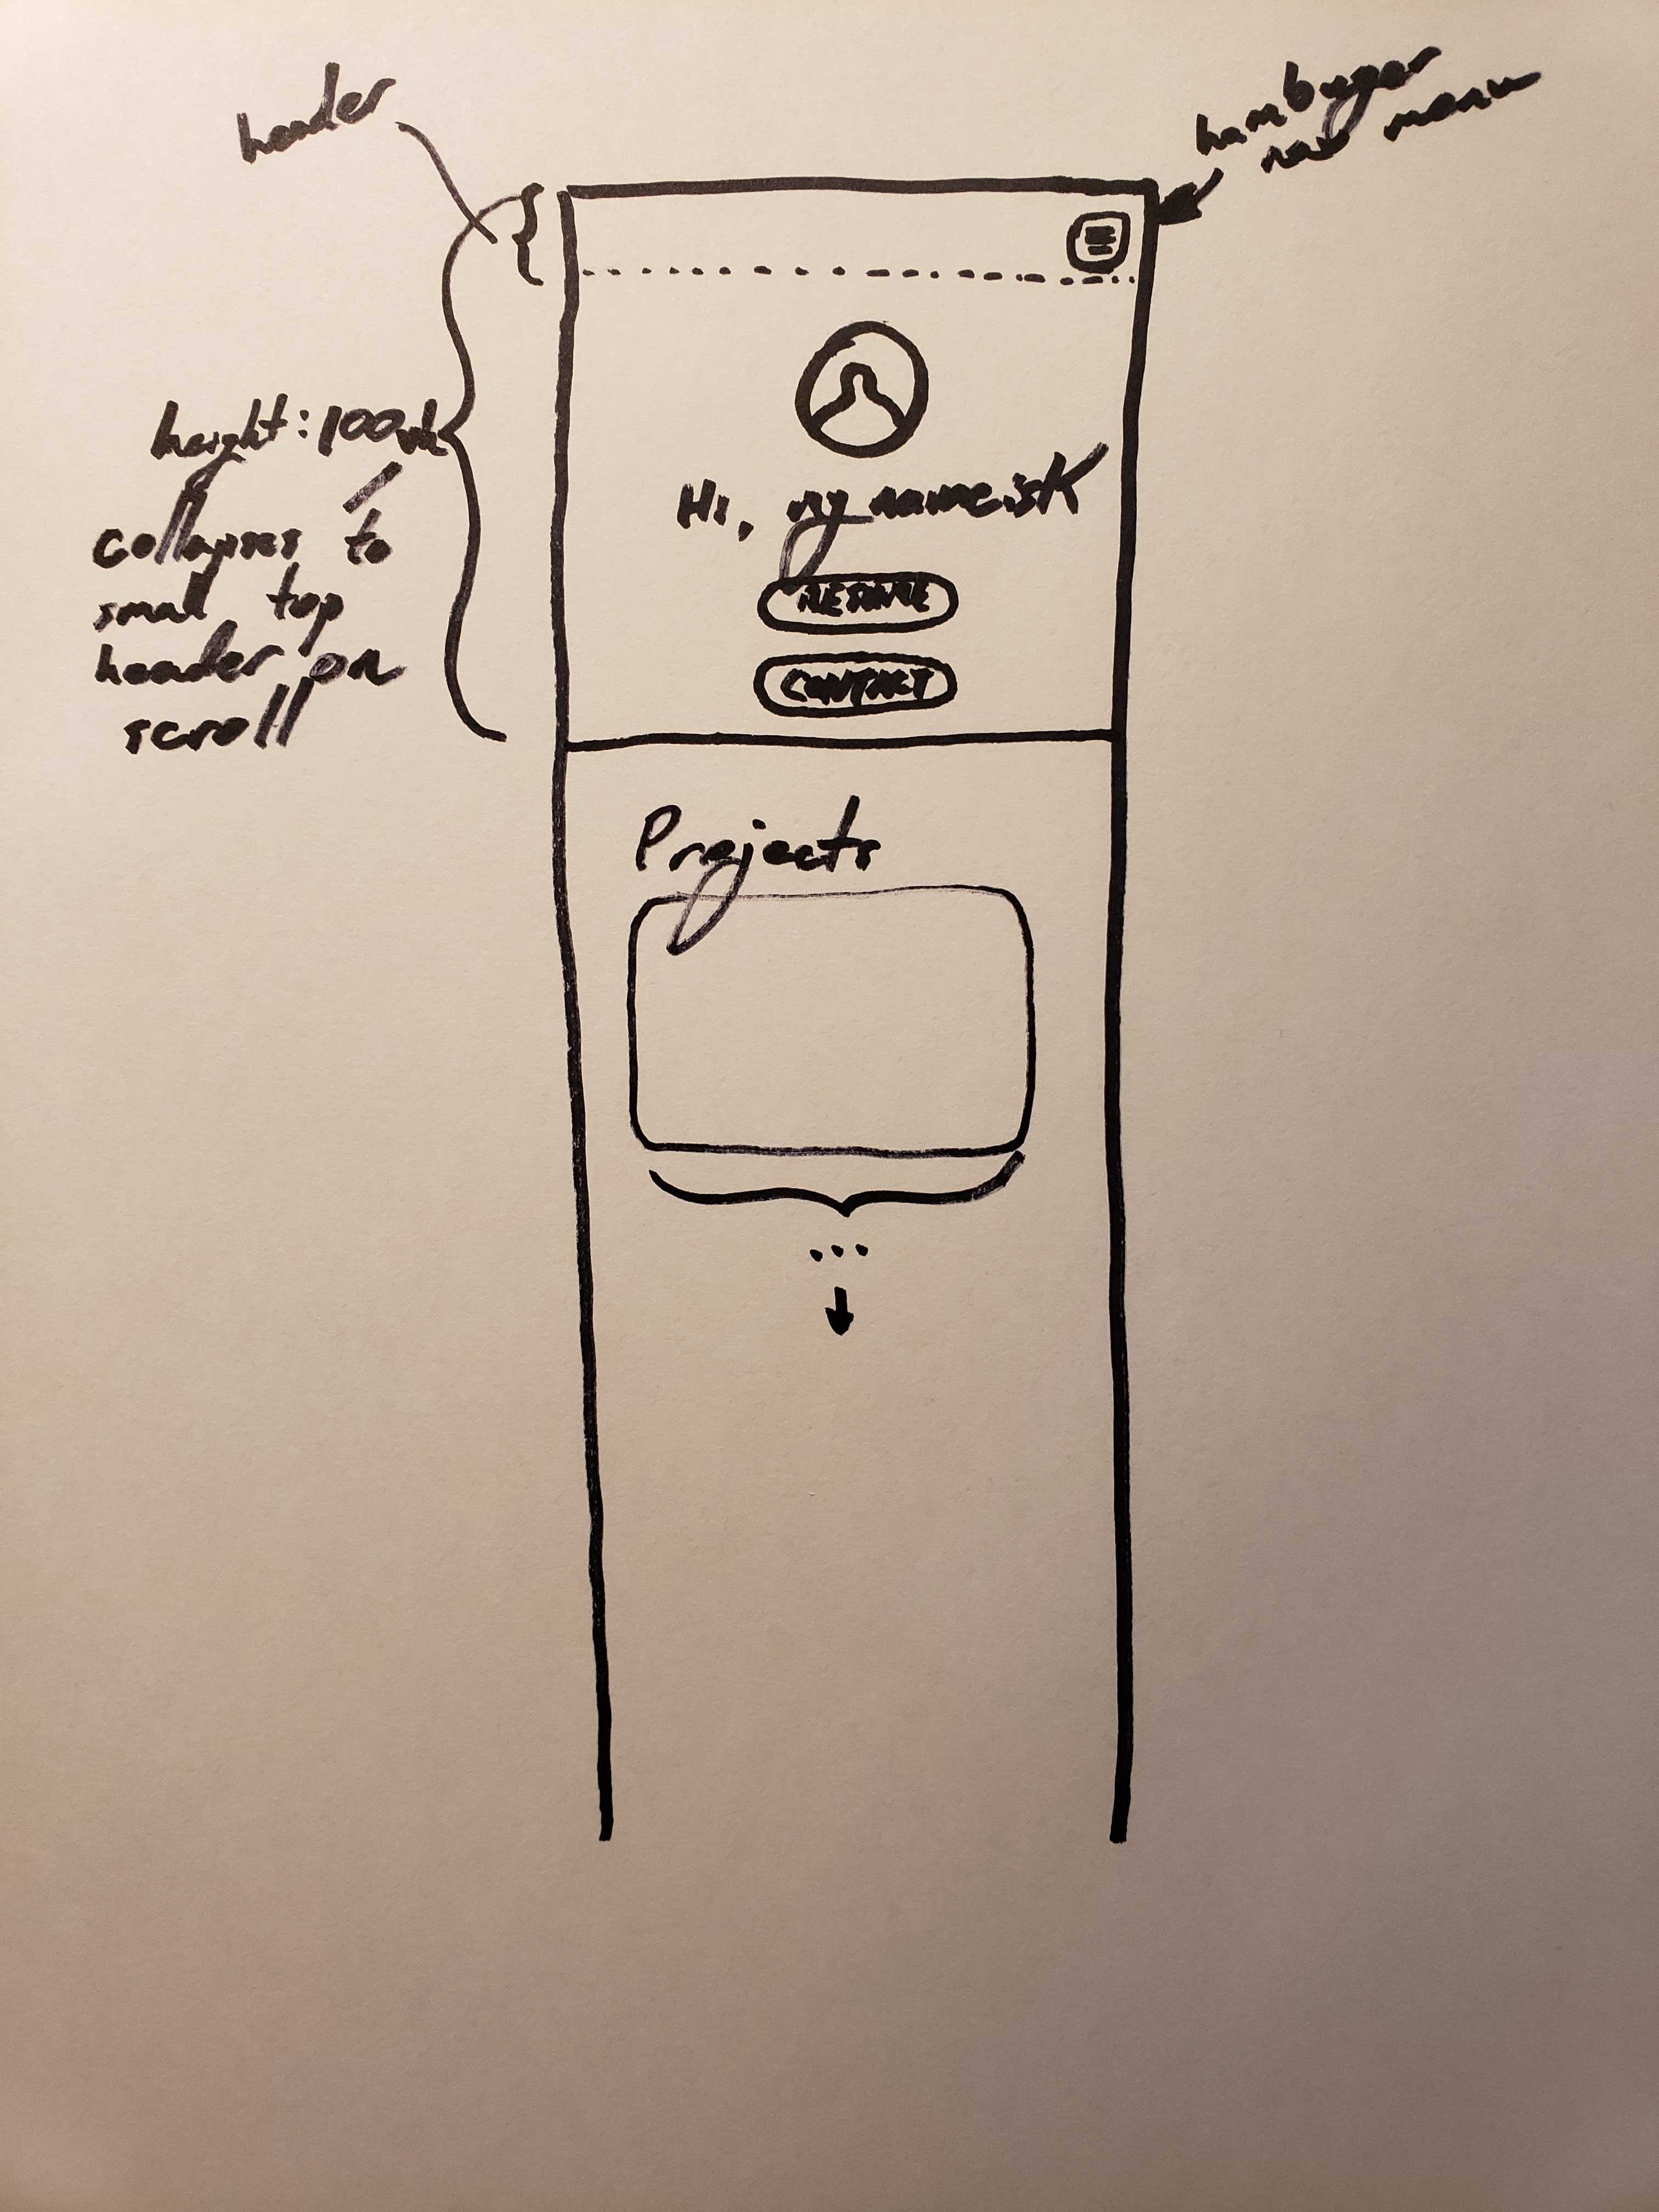 header
hambuger
nav menu
height: 100vh
collapses to
small top
header on
scroll
Hi, my name is K
RESUME
CONTACT
Projects
...